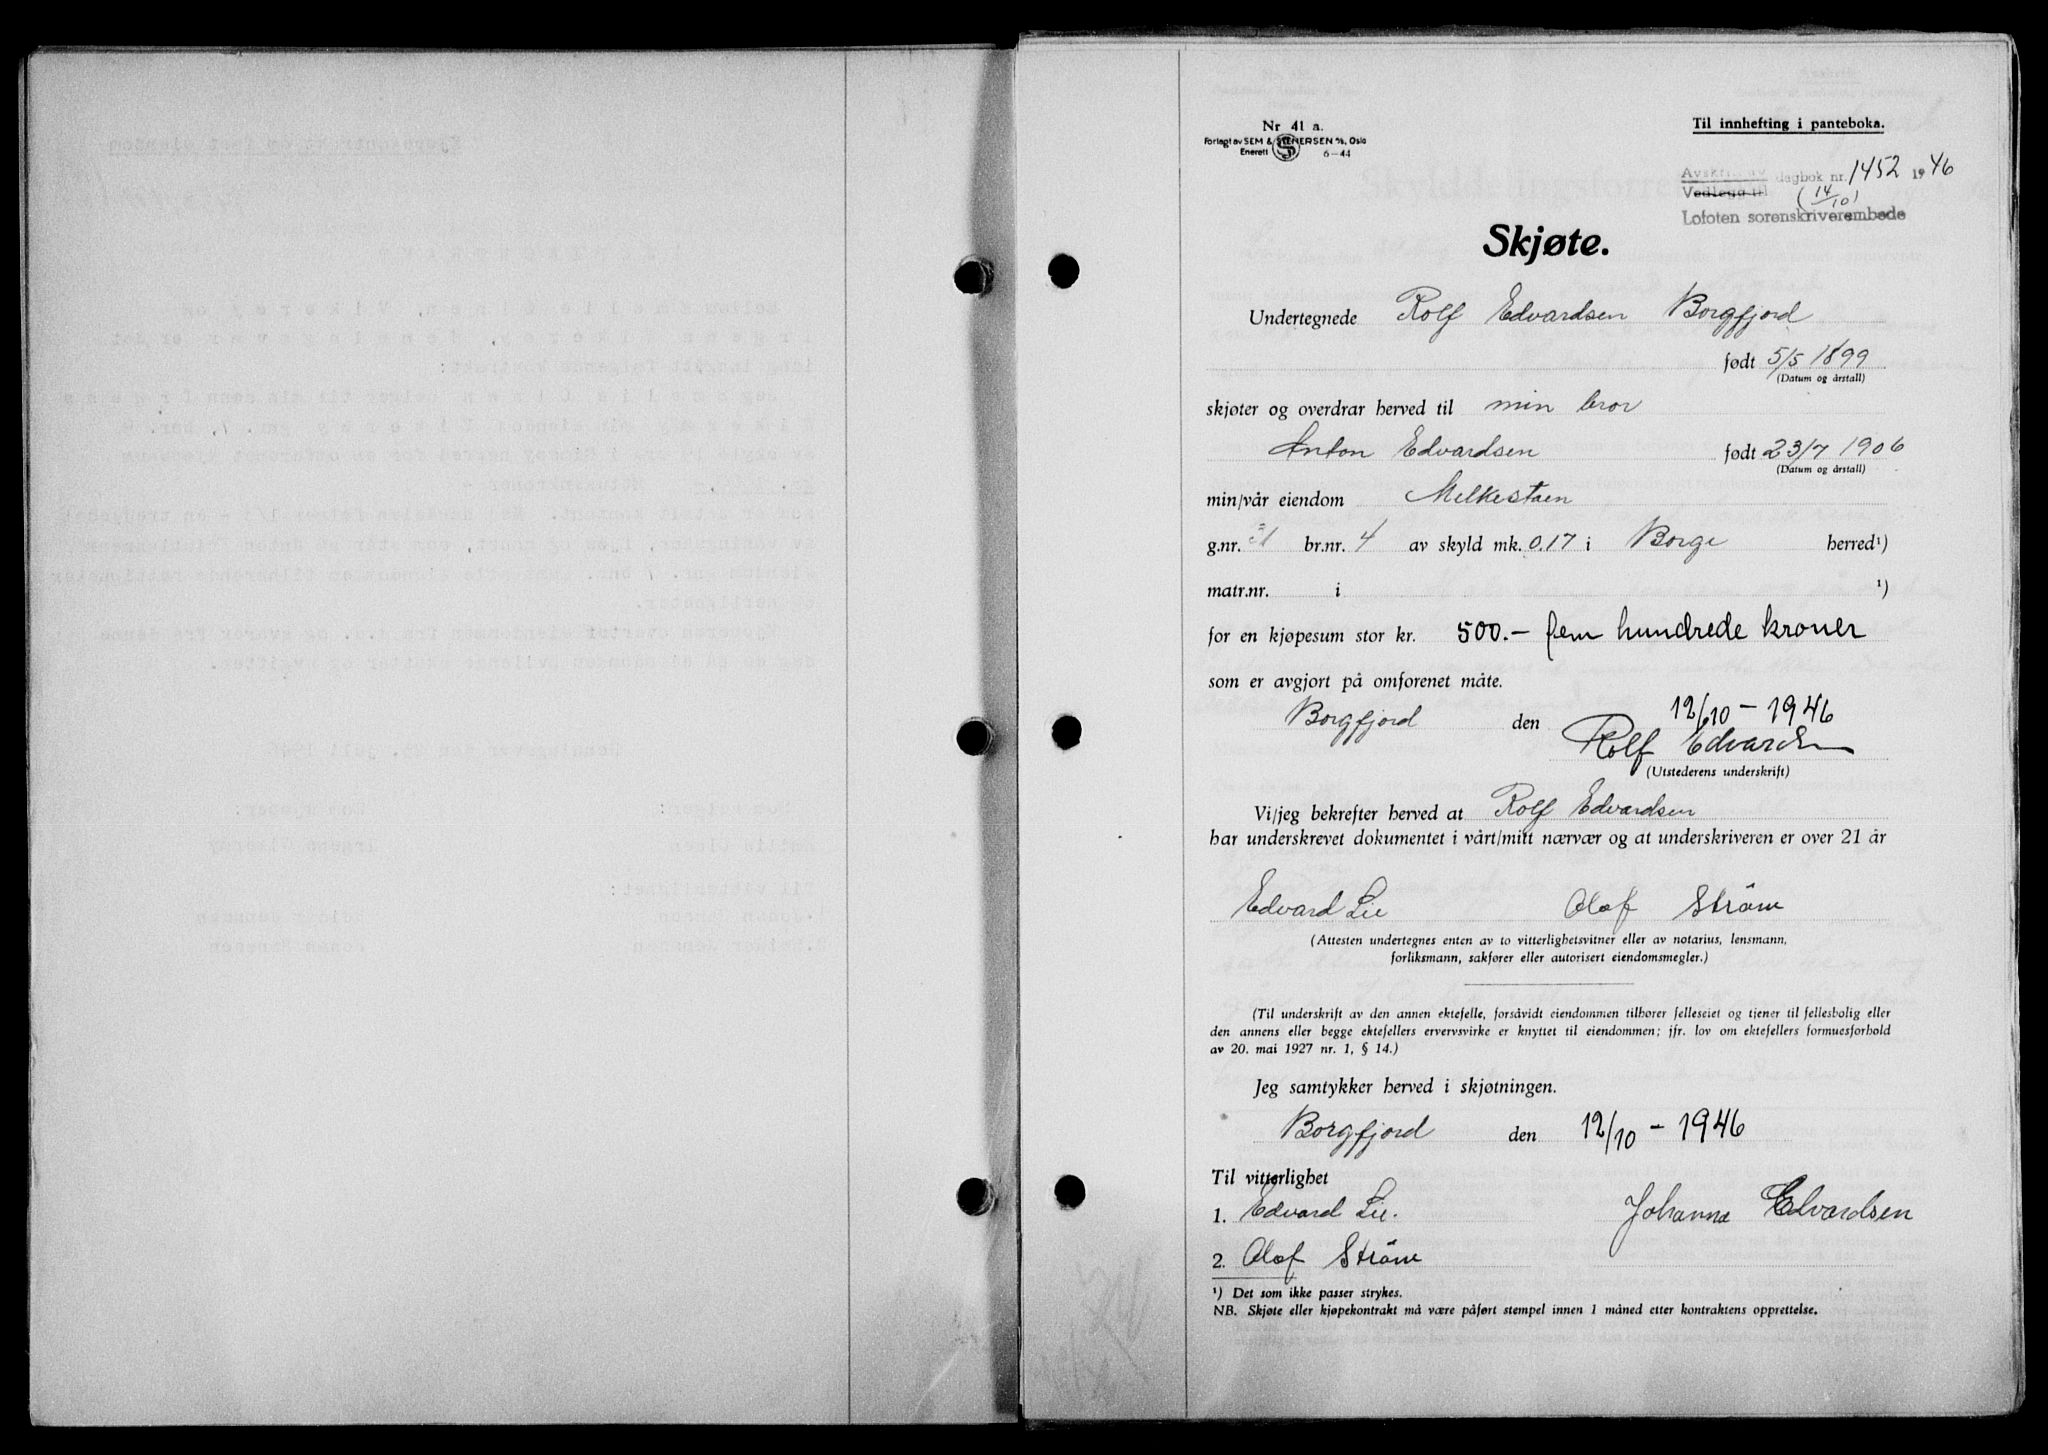 Nr 41 a.
Forlagt av SEM & STENERSEN A/S, Oslo
Enerett 6-44
Til innhefting i panteboka.
Avskrift av
Vedlegg til dagbok nr. 1452 1946
(14/10)
Lofoten sorenskriverembede
Skjøte.
Undertegnede Rolf Edvardsen Borgfjord
født 5/5 1899
(Datum og årstall)
skjøter og overdrar herved til min bror
Anton Edvardsen født 23/7 1906
(Datum og årstall)
min/vår eiendom Melkestaen
g.nr. br.nr. 4 av skyld mk. 0.17 i Borge herred¹)
matr.nr. i ¹)
for en kjøpesum stor kr. 500.- fem hundrede kroner
som er avgjort på omforenet måte.
Borgfjord den 12/10 - 1946
Rolf Edvardsen
(Utstederens underskrift)
Vi/jeg bekrefter herved at Rolf Edvardsen
har underskrevet dokumentet i vårt/mitt nærvær og at underskriveren er over 21 år
Edvard Lie Olaf Strøm
(Attesten undertegnes enten av to vitterlighetsvitner eller av notarius, lensmann,
forliksmann, sakfører eller autorisert eiendomsmegler.)
(Til underskrift av den annen ektefelle, forsåvidt eiendommen tilhører felleseiet og tjener til fellesbolig eller
den annens eller begge ektefellers ervervsvirke er knyttet til eiendommen; jfr. lov om ektefellers formuesforhold
av 20. mai 1927 nr. 1, § 14.)
Jeg samtykker herved i skjøtningen.
Borgfjord den 12/10 - 1946
Til vitterlighet
1. Edvard Lie. Johanna Edvardsen
2. Olaf Strøm
¹) Det som ikke passer strykes.
NB. Skjøte eller kjøpekontrakt må være påført stempel innen 1 måned etter kontraktens opprettelse.